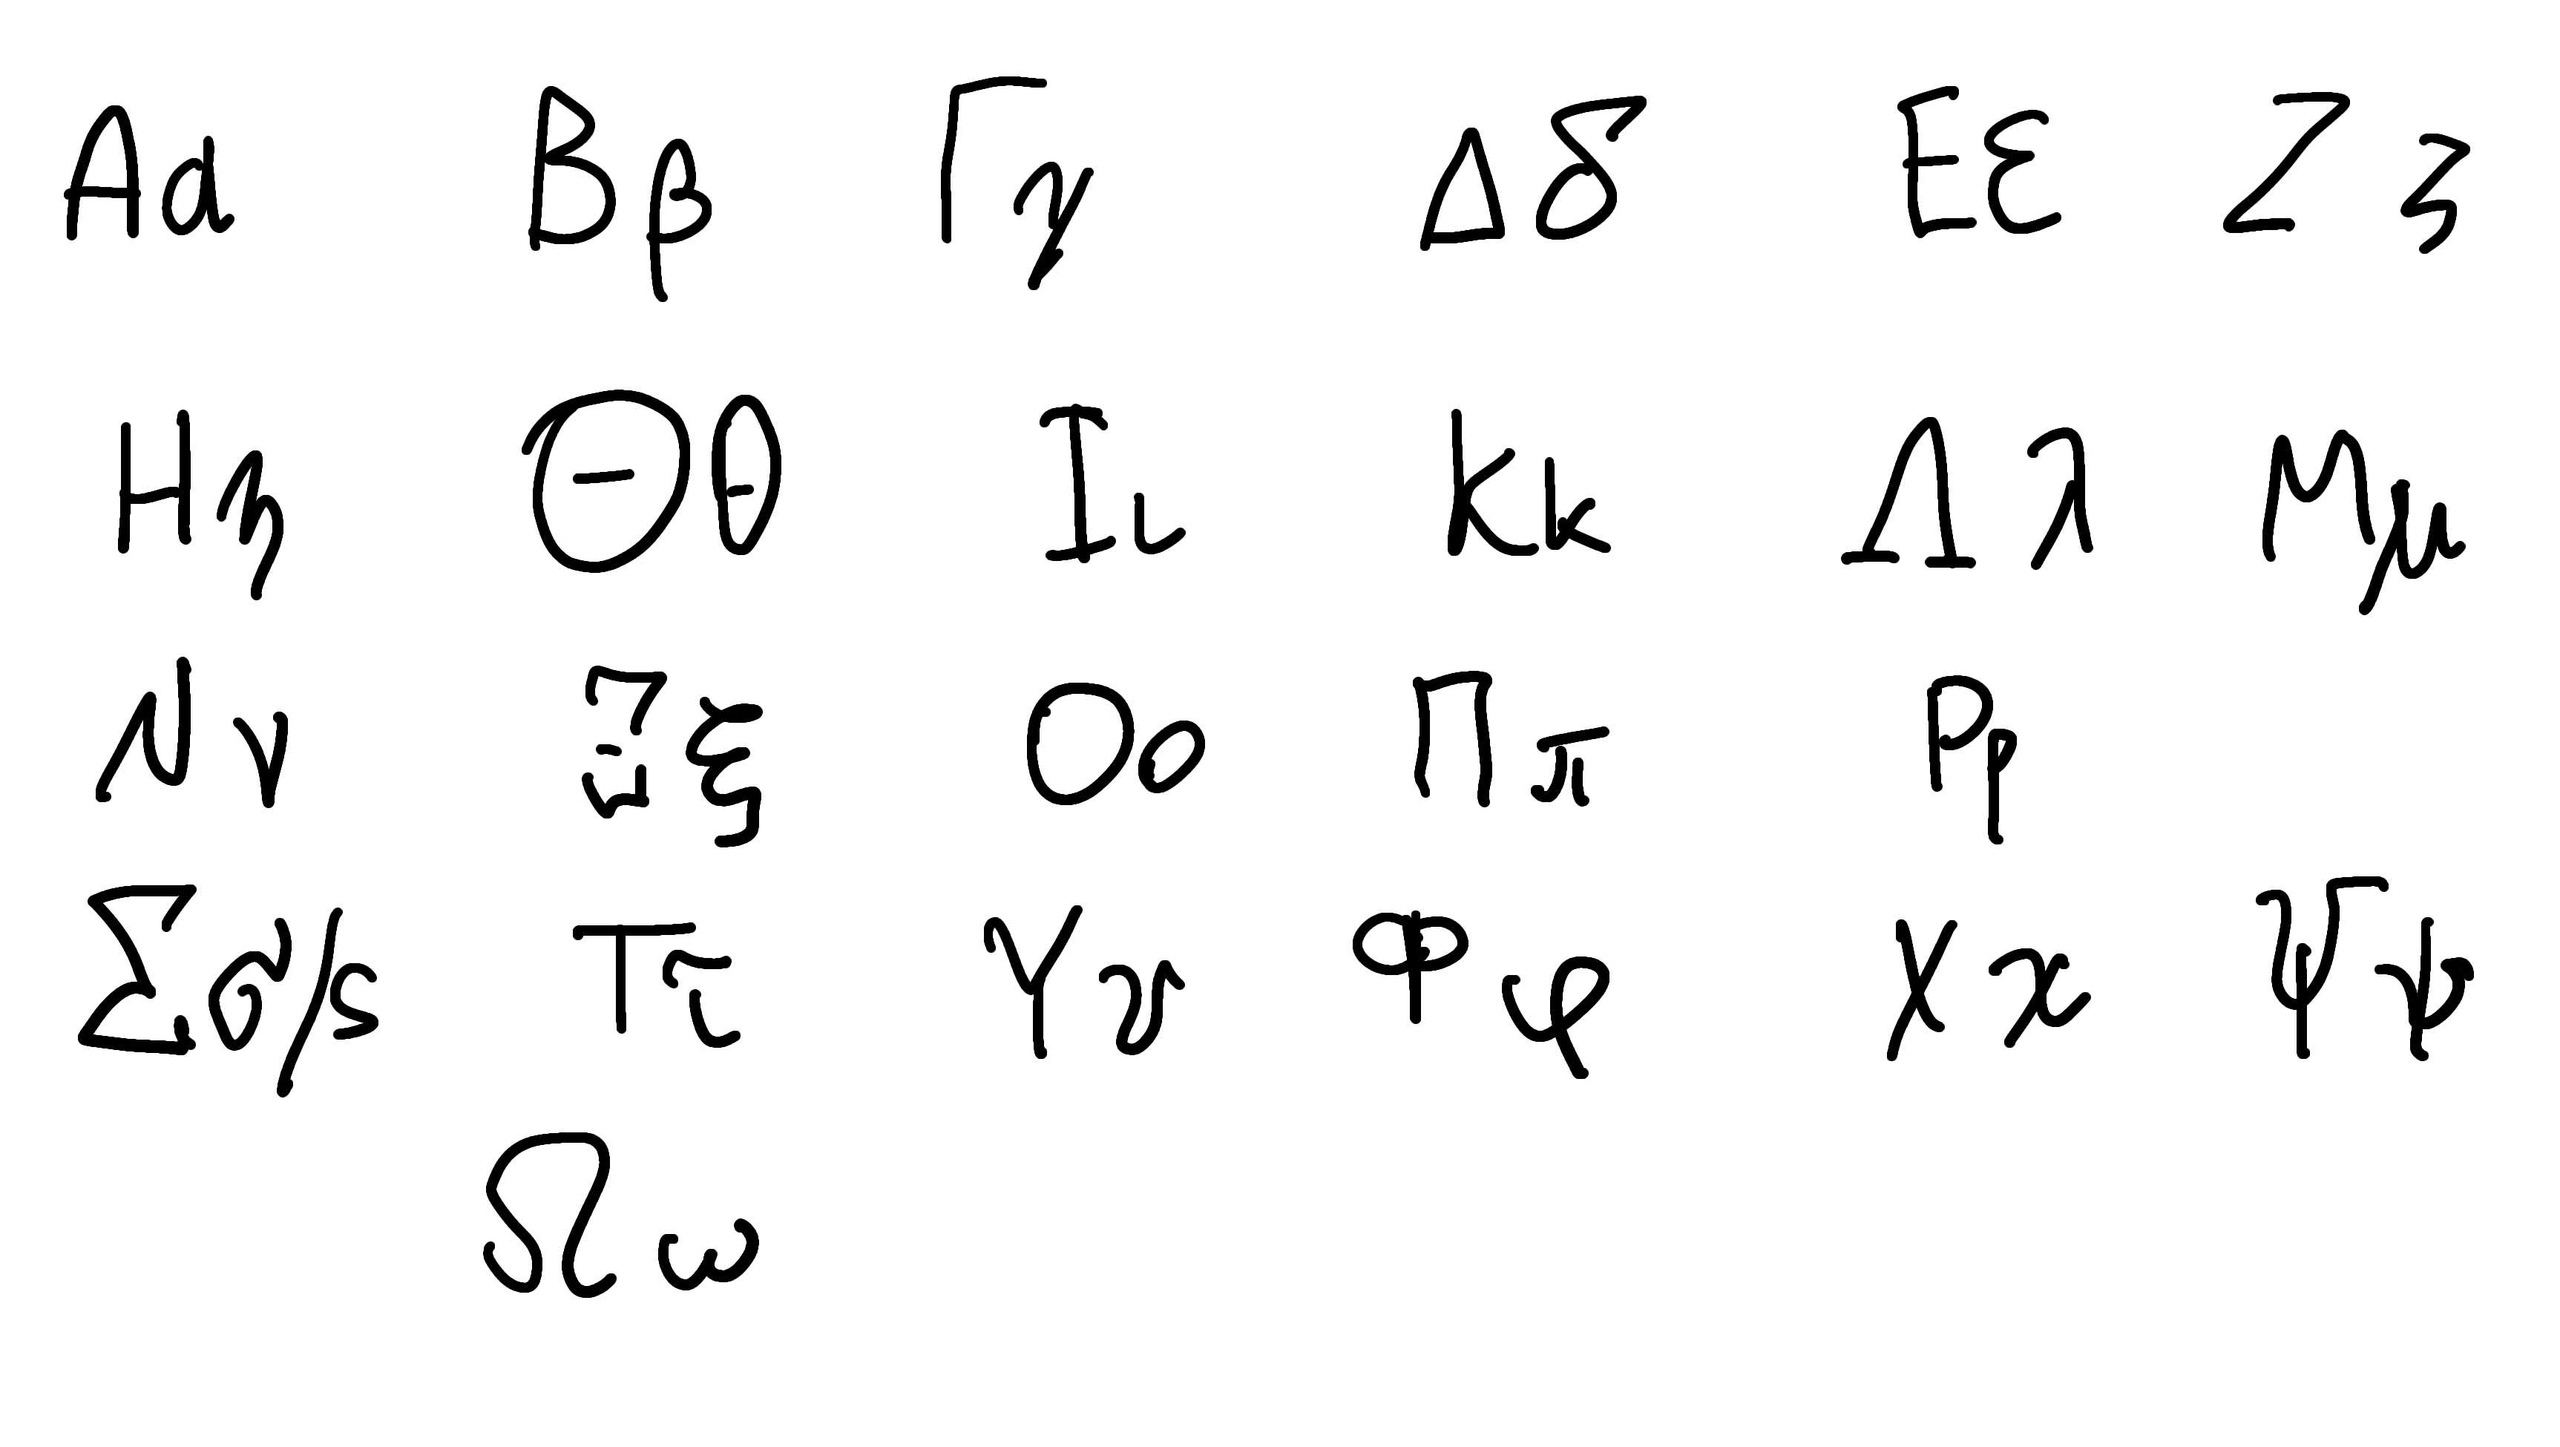 Αα Ββ Γγ Δδ Εε Ζζ
Ηη Θθ Ιι Κκ Λλ Μμ
Νν Ξξ Οο Ππ Ρρ
Σσ/ς Ττ Υυ Φφ Χχ Ψψ
Ωω